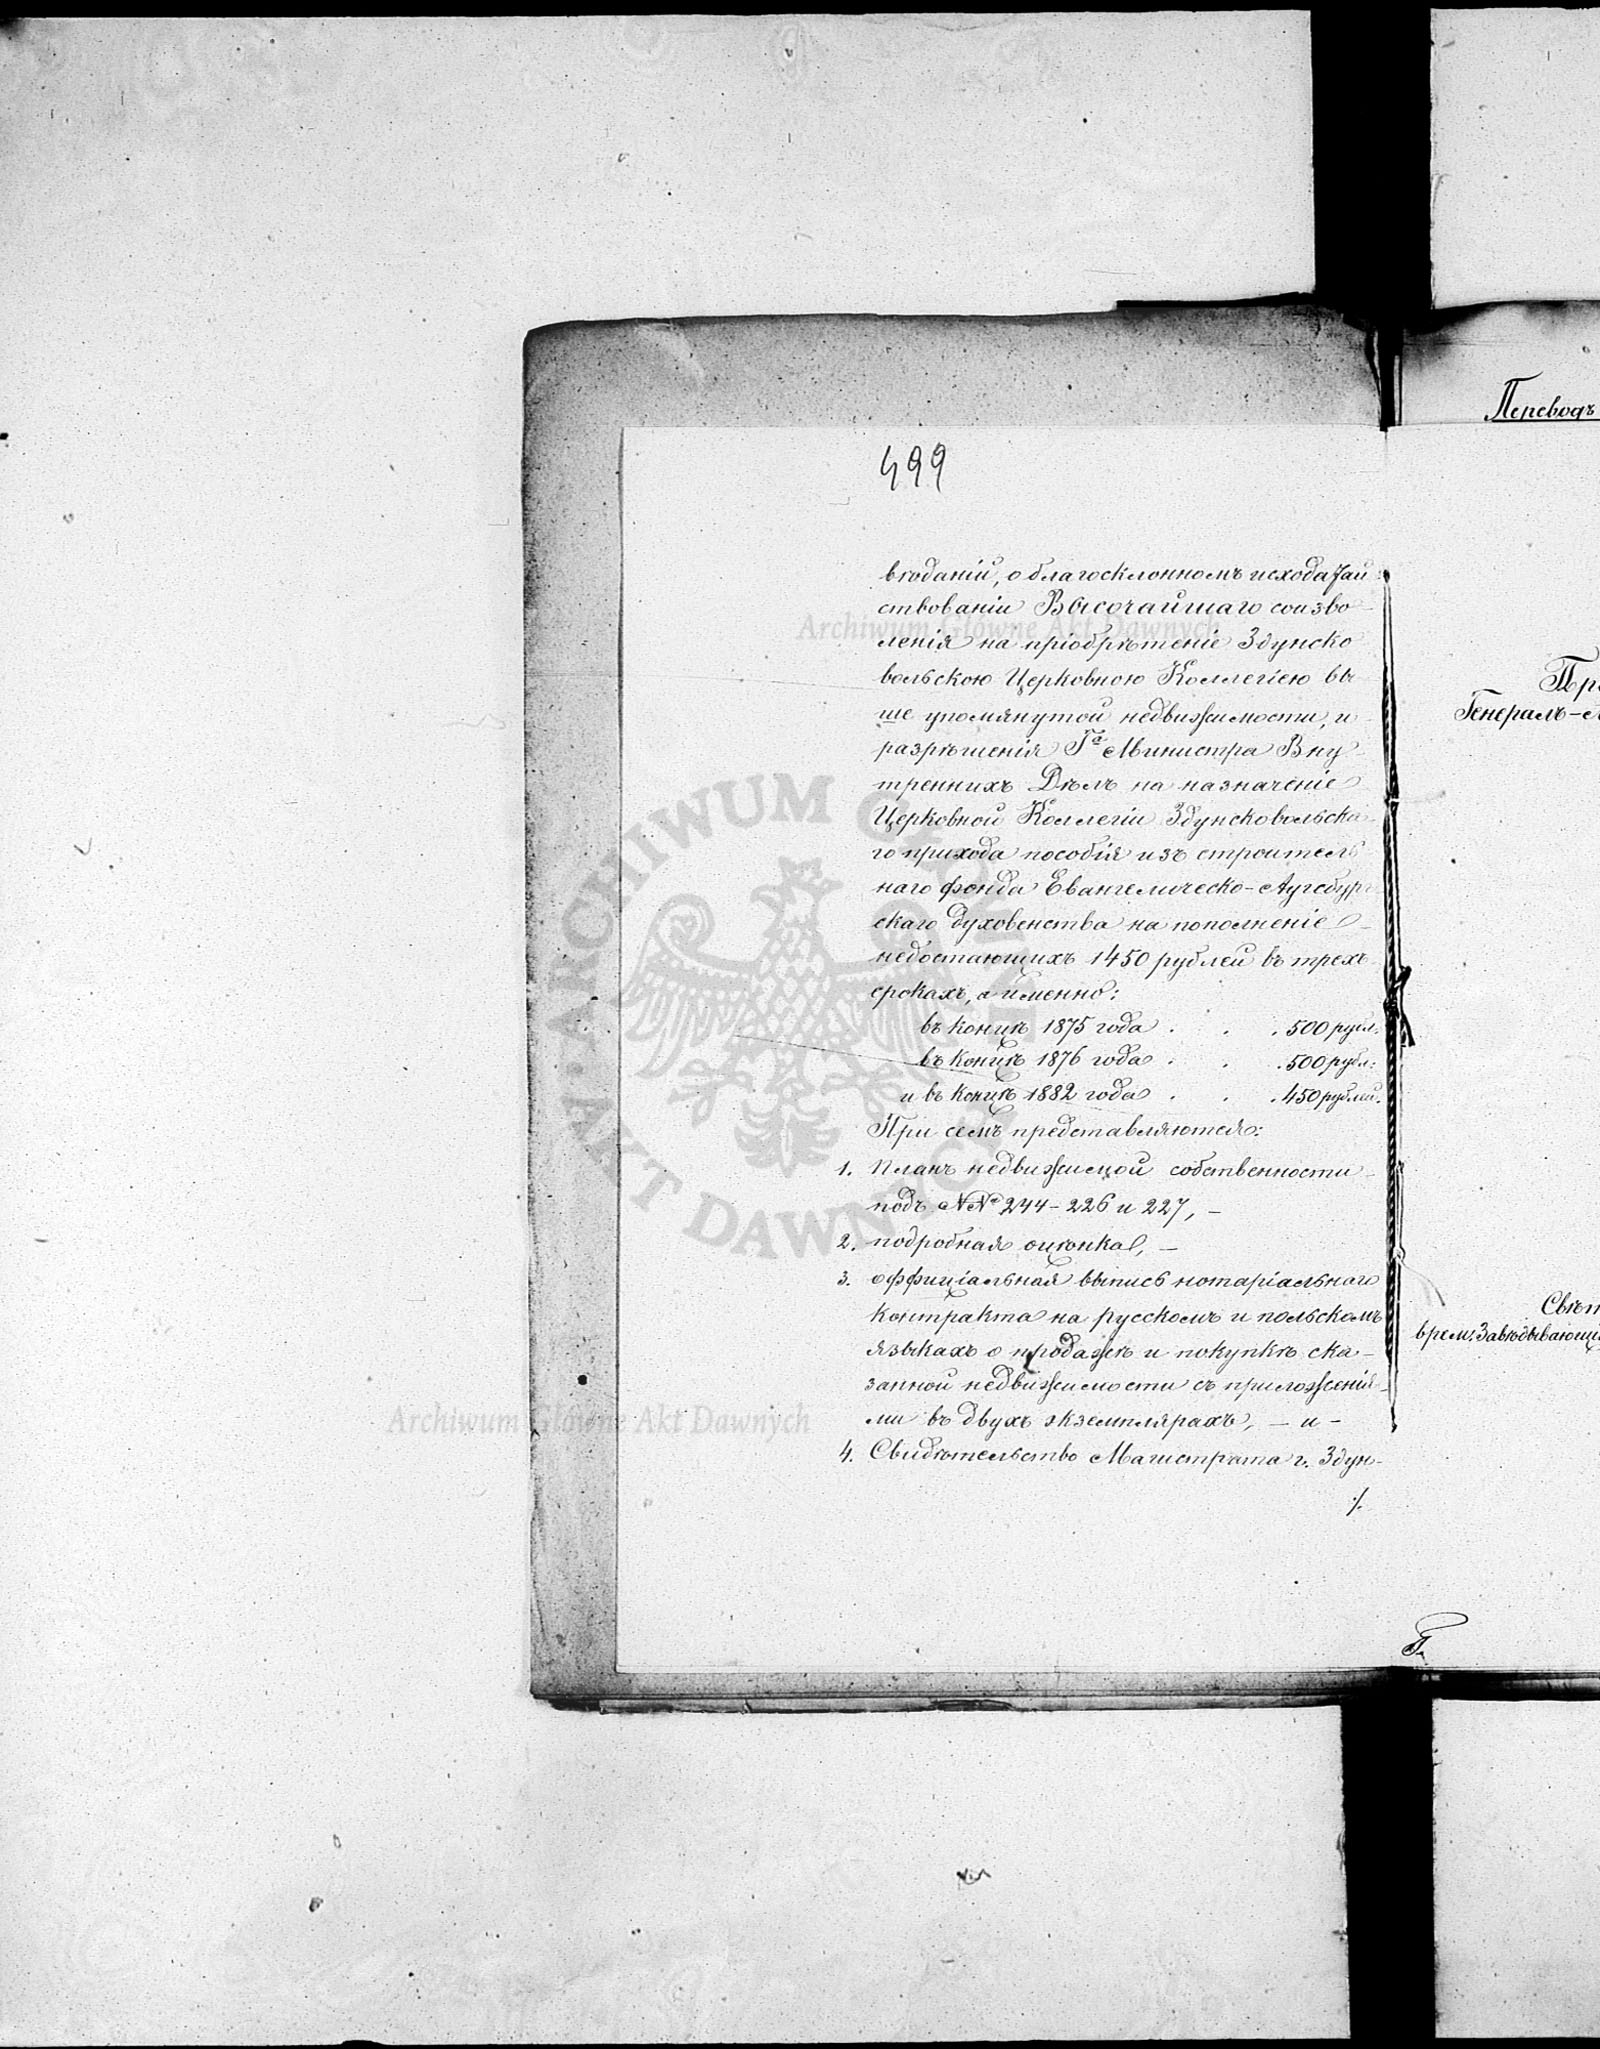 499
вѣданій, о благосклонномъ исходатай
ствованіи Высочайшаго соизво
ленія на пріобрѣтеніе Здунско
вольскою Церковною Коллегіею вы
ше упомянутой недвижимости, и
разрѣшенія Га Министра Вну
треннихъ Дѣлъ на назначеніе
Церковной Коллегіи Здунсковольска
го прихода пособія изъ строитель
наго фонда Евангелическо-Аугсбург
скаго духовенства на пополненіе
недостающихъ 1450 рублей въ трехъ
срокахъ, а именно:
въ концѣ 1875 года . . . 500 рубл:
въ концѣ 1876 года . . . 500 рубл:
и въ концѣ 1882 года . . . 450 рублей.
При семъ представляются:
1. Планъ недвижимой собственности
подъ NNо 244-226 и 227, –
2. подробная оцѣнка, –
3. оффиціальная выпись нотаріальнаго
контракта на русскомъ и польскомъ
языкахъ о продажѣ и покупкѣ ска-
занной недвижимости съ приложенія-
ми въ двухъ экземплярахъ, – и –
4. Свидѣтельство Магистрата г. Здун-
./.
Переводъ
Пре
Генералъ-
Свѣт
врем. Завѣдывающі
Archiwum Główne Akt Dawnych
Archiwum Główne Akt Dawnych